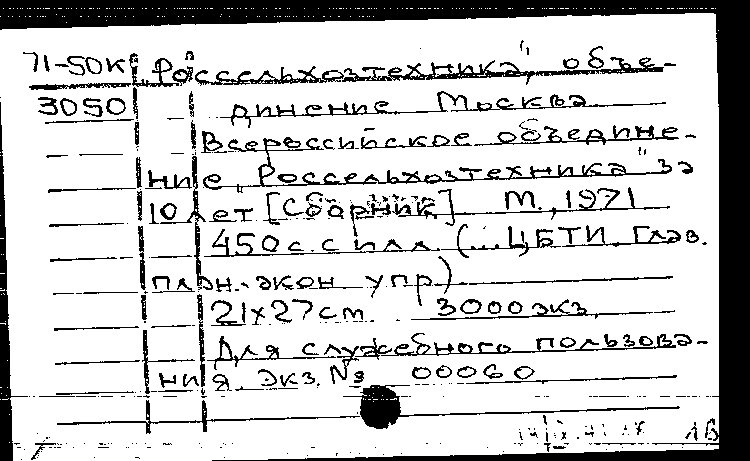 71-50к „Россельхозтехника", объе-
3050 динение. Москва.
Всероссийское объедине-
ние „Россельхозтехника" за
10 лет [Сборник] М., 1971
450 с. с илл. (...ЦБТИ. Глав.
план.-экон упр)
21х27 cm 3000 экз.
Для служебного пользова-
ния. Экз. № 00060